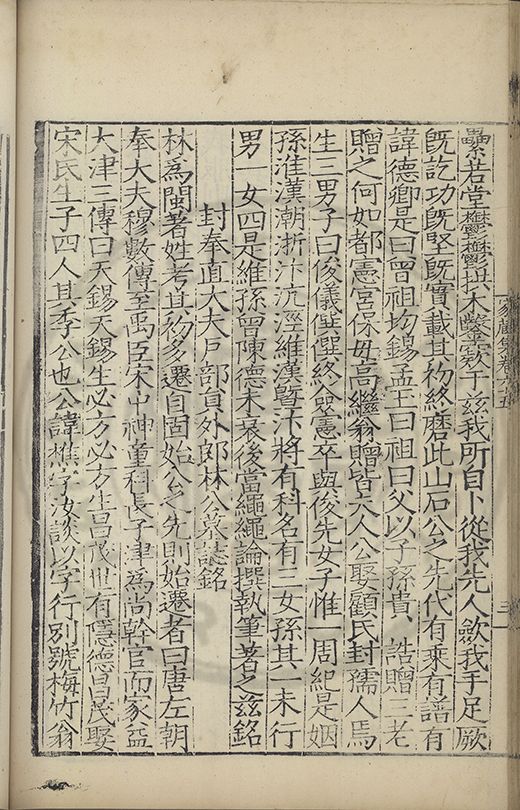 纍若堂鬱鬱拱木鑿竁于兹我所自卜從我先人斂我手足厥
既訖功既堅既實載其初終磨此山石公之先代有乗有譜有
諱德卿是曰曾祖均錫孟玉曰祖曰父以子孫貴誥贈三老
贈之何如都憲宫保毋高繼翁贈皆夫人公娶顧氏封孺人焉
生三男子曰俊儀僎僎終眾憲卒與俊先女子惟一周紀是姻
孫淮漢潮浙汴沆涇維漢暨汴將有科名有二女孫其一未行
男一女四是維孫曾陳德未衰後當繩繩論撰執筆著之兹銘
封奉直大夫戶部員外郎林公墓誌銘
林爲閩著姓考其初多遷自固始公之先則始遷者曰唐左朝
奉大夫穆數傳至禹臣宋中神童科長子津爲尚幹官而家孟
大津三傳曰天錫天錫生必方必方生昌茂世有隱德昌茂娶
宋氏生子四人其季公也公諱樵字汝談以字行別號梅竹翁
家藏集卷六十五